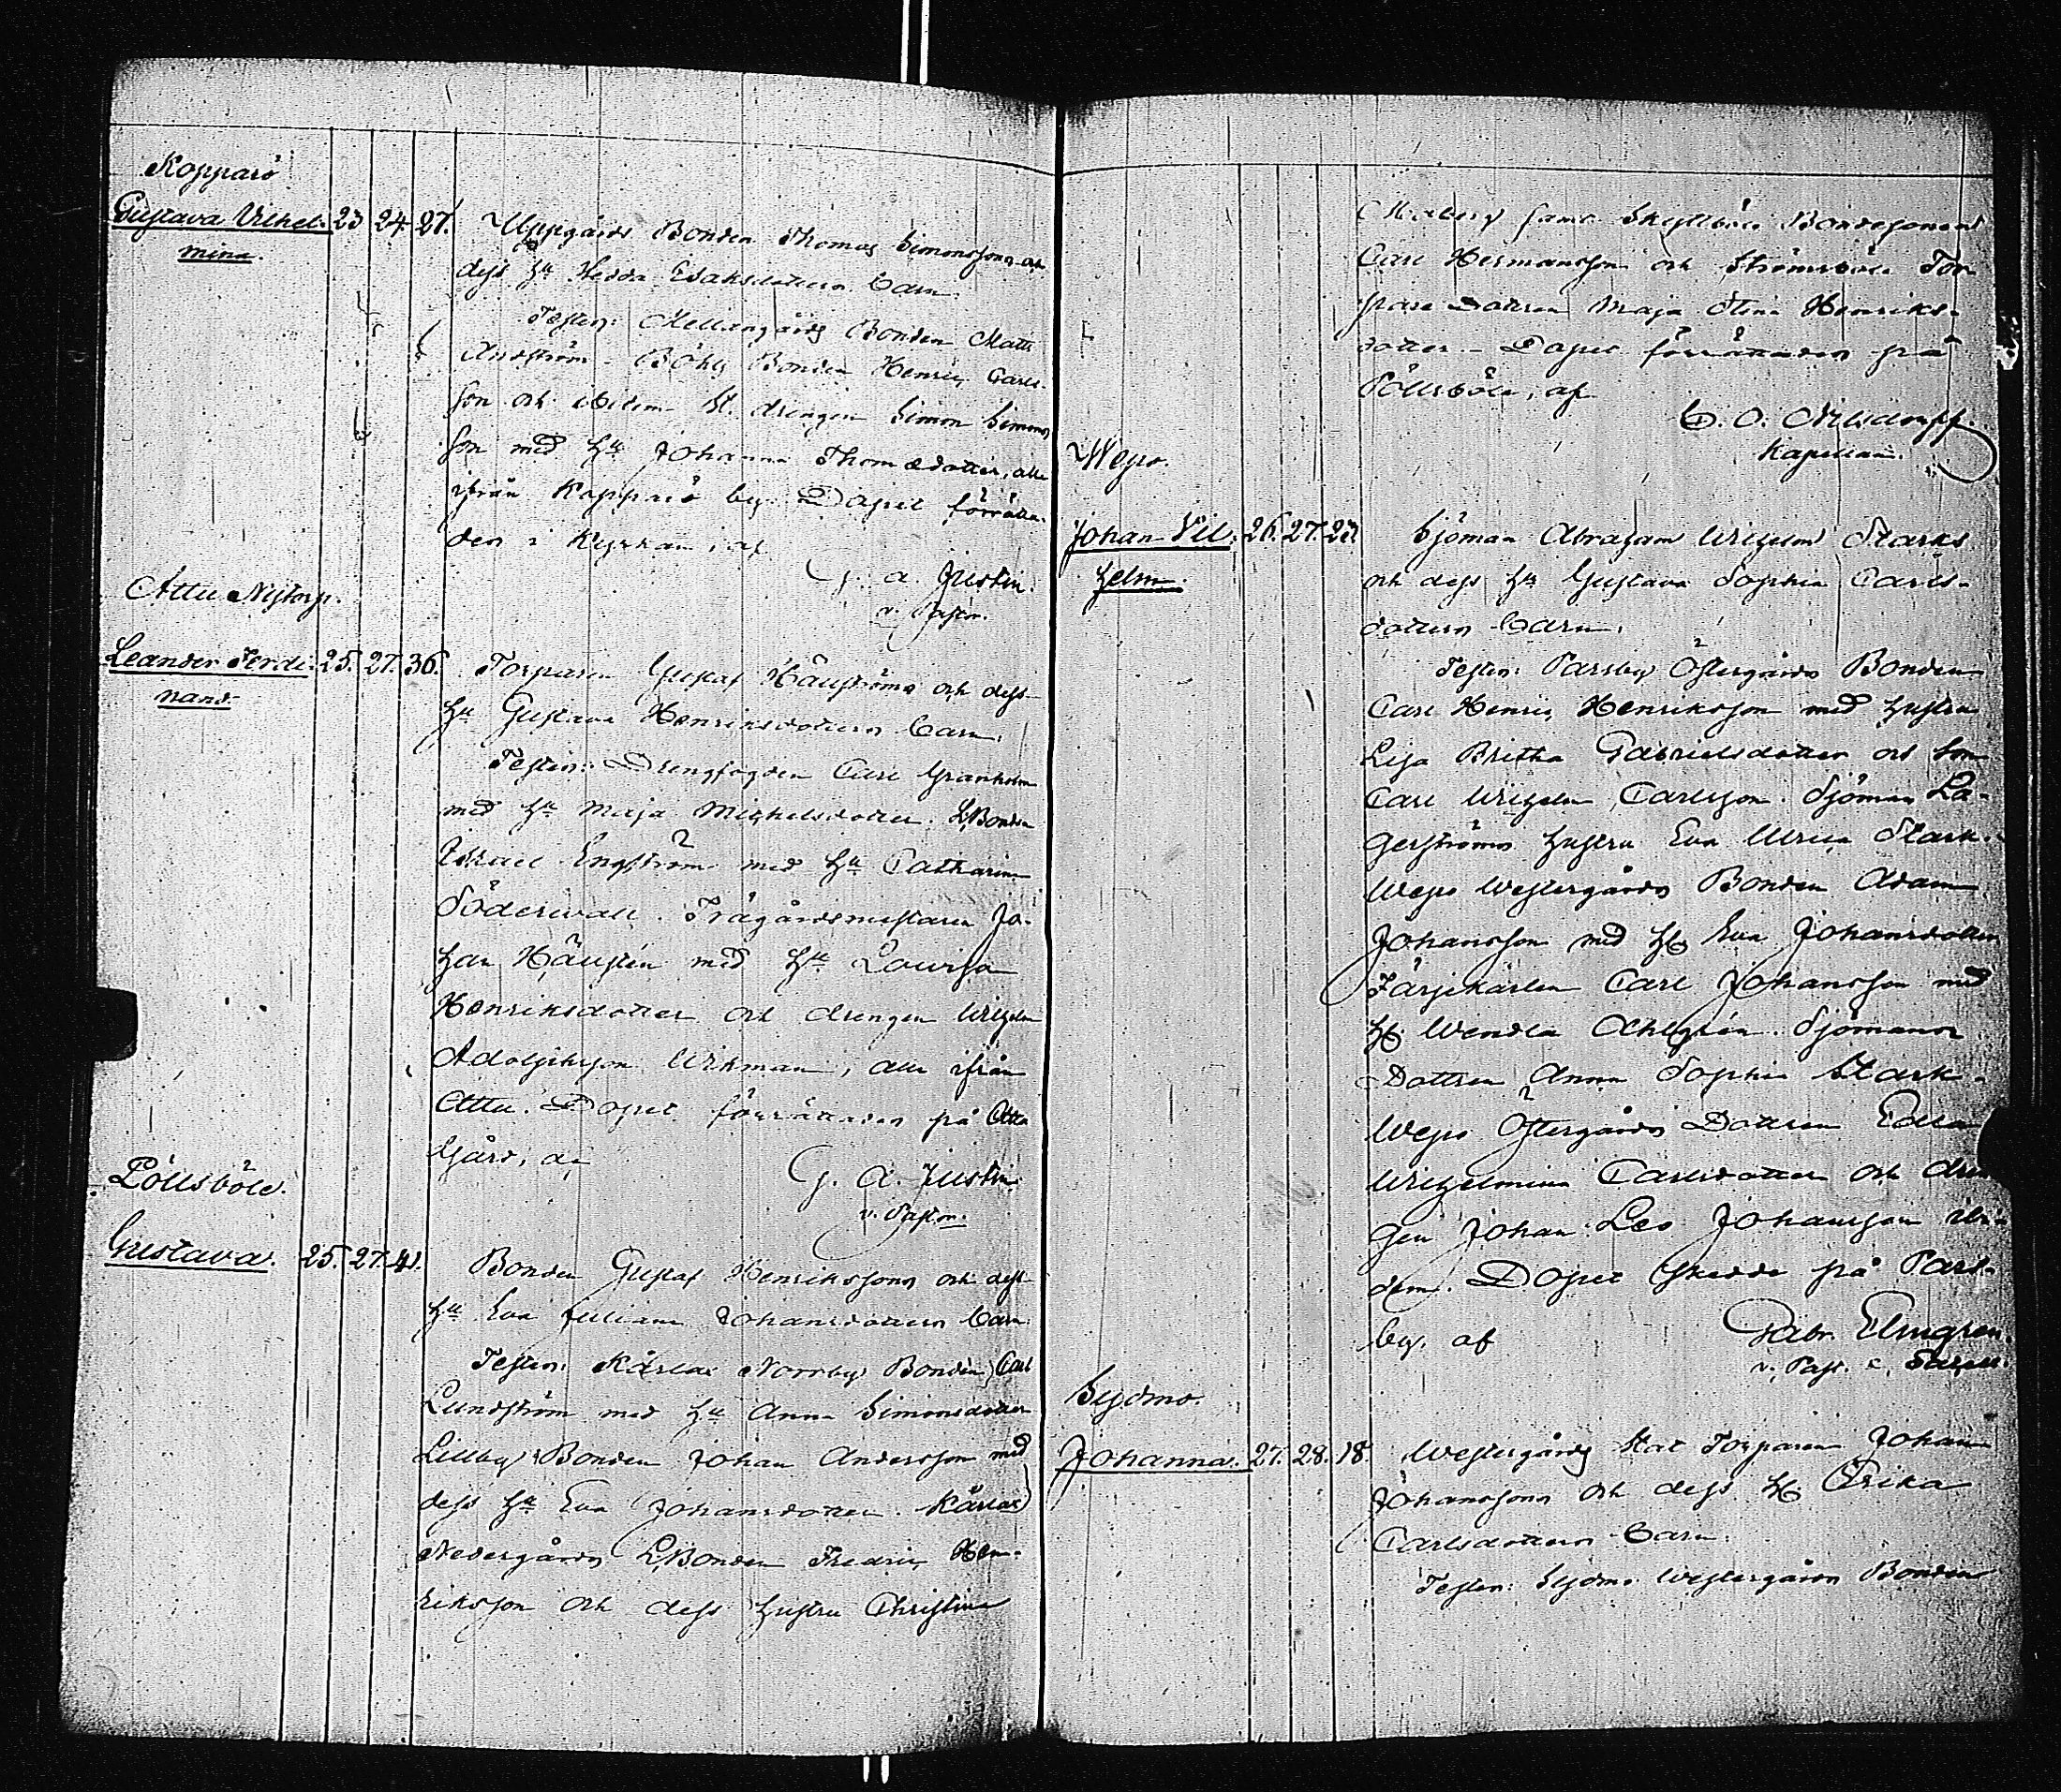 Kopparö
Gustava Vilhel- 23 24 27. Uppgårds Bonden Thomas Simonssons och
mina. dess Hu Hedda Isaksdotters barn.
Testes: Mellangårds Bonden Matts
Andström - Böhls Bonden Henric Carls-
son och ibidem St. drengen Simon Simons
son med Hu Johanna Thomædotter, alle
ifrån Kopparö by. Dopet förrätta-
des i Kyrkan, af
G. A. Justin.
v. Pastor.
Attu Nytorp.
Leander Ferdi- 25. 27. 36. Torparen Gustaf Häuströms och dess
nand. Hu Gustava Henriksdotters barn.
Testes: Drengfogden Carl Granholm
med Hu Maja Michelsdotter. L.Bonden
Engström med Hu Catharina
Söderwall. Trägårdsmestaren Jo-
han Häusten med Hu Lowisa
Henriksdotter och drengen Wilhelm
Adolphsson Wikman, alle ifrån
Attu. Dopet förrättades på Attu
Gård, af
G. A. Justin.
v. Pastor.
Pöllsböle.
Gustava. 25. 27. 41. Bonden Gustaf Henrikssons och dess
Hu Eva Juliana Johansdotters barn.
Testes: Kärlax Norrby Bonden Carl
Lundström med Hu Anna Simonsdotter
Lillby Bonden Johan Andersson med
dess Hu Eva Johansdotter. Kärlax
Nedergårds L.Bonden Fredric Hen-
riksson och dess hustru Christina
samt Skyllböle Bondesonen
Carl Hermansson och Strömsböle Tor-
pare Dottren Maja Stina Henriks-
dotter. - Dopet förrättades på
Pöllsböle, af
Kapellan.
Wepo.
Johan Vil- 26. 27. 27. Sjöman Abraham Wilhelm Starks
helm. och dess Hu Gustava Sophia Carls-
dotters barn.
Testes: Parsby Östergårds Bonden
Carl Henric Henriksson med hustru
Lisa Britha Gabrielsdotter och Son
Carl Wilhelm Carlsson. Sjöman La-
gerströms hustru Eva Ulrica Stark.
Wepo Westergårds Bonden Adam
Johansson med H. Eva Johansdotter
Färjekarlen Carl Johansson med
H. Wendla Öhlgrén. Sjömans
Dottren Anna Sophia Stark.
Wepo Östergårds Dottren Edla
Wilhelmina Carlsdotter och drän-
gen Johan Leo Johansson ibi-
dem. Dopet skedde på Pars-
by. af Gabr. Elmgren.
v. Past. & Sacell.
Sydmo.
Johanna. 27. 28. 18. Westergårds Stat Torparen Johan
Johanssons och dess H. Erika
Carlsdotters barn.
Testes: Sydmo Westergårds Bonden